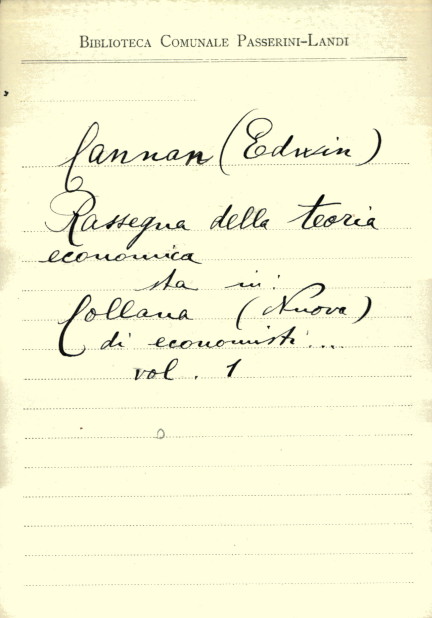 BIBLIOTECA COMUNALE PASSERINI-LANDI
Cannan (Edwin)
Rassegna della teoria
economica
sta in:
Collana (Nuova)
di economisti....
vol. 1